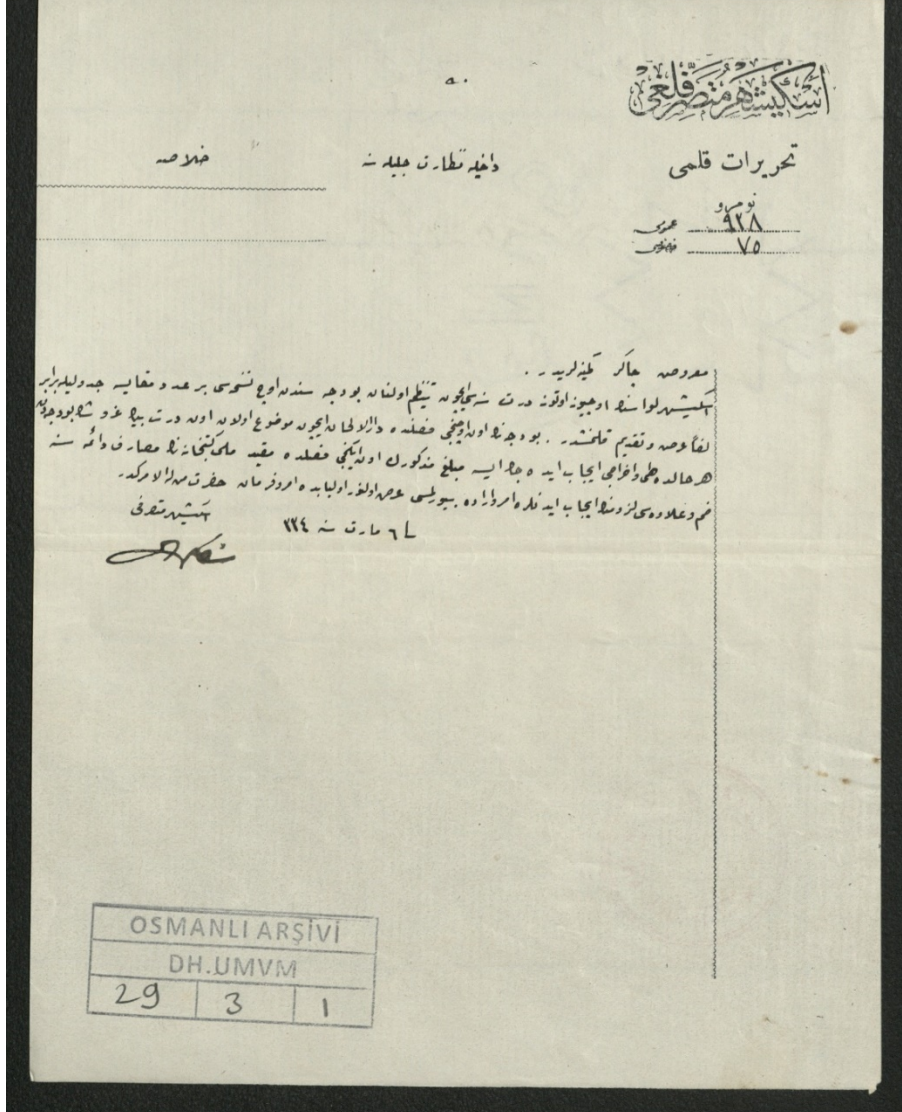 ٥٠
اسكیشهر متصرفلغی
تحریرات قلمی
داخلیه نظارت جلیله سنه
خلاصه
نومرو
٩٢٨ عمومی
٧٥ خصوصی
معروض چاكر كمینه لریدر .
اسكیشهر لواسنك اوچیوز اوتوز درت سنه سی ایچون تنظیم اولنان بودجه سندن اوچ نسخه سی بر عدد مقایسه جدولیله برابر
لفاً عرض و تقدیم قلنمشدر . بودجه نك اون اوچنجی فصلنده دارالالحان ایچون موضوع اولان اون درت بیك غروشك بودجه دن
هر حالده طی و اخراجی ایجاب ایده جك ایسه مبلغ مذكورك اون ایكنجی فصلنده مقید ملی كتبخانه نك مصارف دائمه سنه
ضم و علاوه سی لزومنك ایجاب ایدنلره امر و اراده بیورلمسی عرض اولنور اولبابده امر و فرمان حضرت من له الامركدر
فی ٦ مارت سنه ٣٣٤
اسكیشهر متصرفی
OSMANLI ARŞİVİ
DH.UMVM
29 3 1